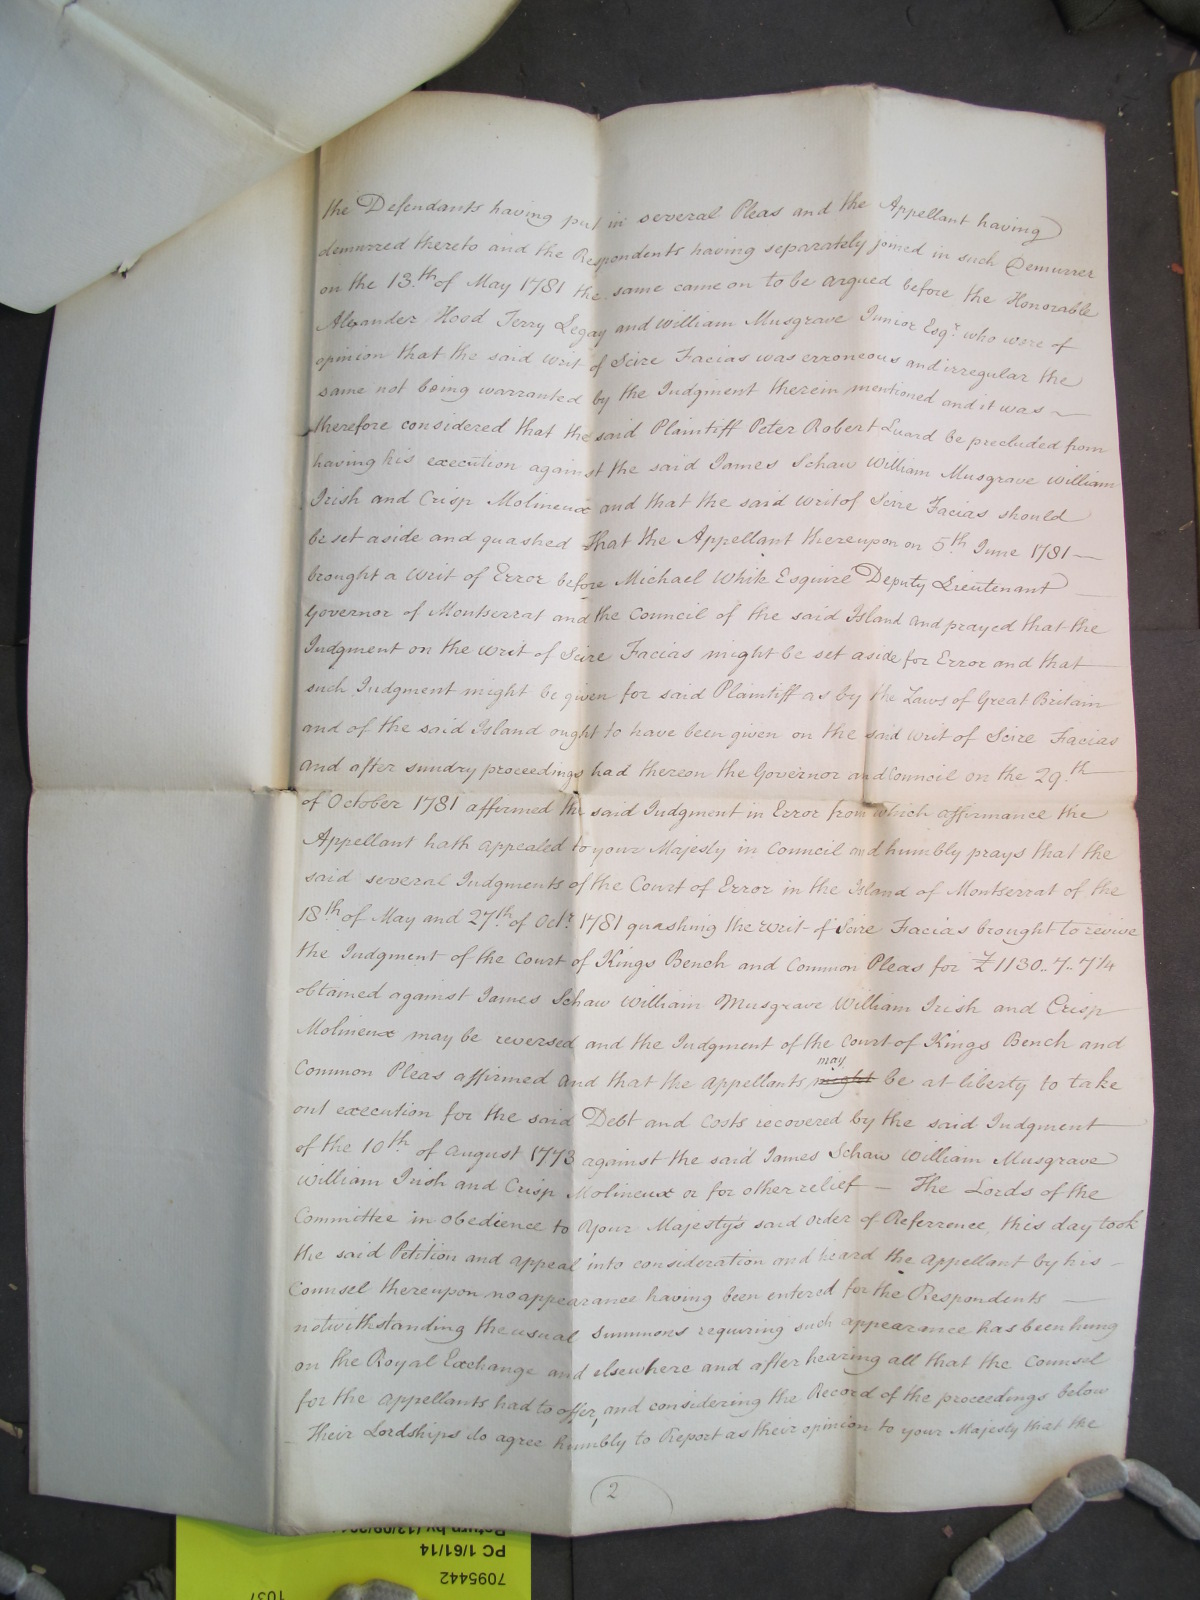 the Defendants having put in several Pleas and the Appellant having
demurred thereto and the Respondents having separately joined in such Demurrer
on the 13.th of May 1781 the same came on to be argued before the Honorable
Alexander Hood Terry Legay and William Musgrave Junior Esqr. who were of
opinion that the said writ of Scire Facias was erroneous and irregular the
same not being warranted by the Judgment therein mentioned and it was
therefore considered that the said Plaintiff Peter Robert Luard be precluded from
having his execution against the said James Schaw William Musgrave William
Irish and Crisp Molineux and that the said writ of Scire Facias should
be set aside and quashed That the Appellant thereupon on 5th June 1781 —
brought a writ of Error before Michael White Esquire Deputy Lieutenant
Governor of Montserrat and the Council of the said Island and prayed that the
Judgment on the writ of Scire Facias might be set aside for Error and that
such Judgment might be given for said Plaintiff as by the Laws of Great Britain
and of the said Island ought to have been given on the said writ of Scire Facias
and after sundry proceedings had thereon the Governor and Council on the 29.th
of October 1781 affirmed the said Judgment in Error from which affirmance the
Appellant hath appealed to your Majesty in Council and humbly prays that the
said several Judgments of the Court of Error in the Island of Montserrat of the
18th of May and 27th of Octr. 1781 quashing the writ of Scire Facias brought to revive
the Judgment of the Court of Kings Bench and Common Pleas for £1130..7..7¼
obtained against James Schaw William Musgrave William Irish and Crisp
Molineux may be reversed and the Judgment of the Court of Kings Bench and
Common Pleas affirmed and that the Appellants might may be at liberty to take
out execution for the said Debt and Costs recovered by the said Judgment
of the 10th of August 1773 against the said James Schaw William Musgrave
William Irish and Crisp Molineux or for other relief — The Lords of the
Committee in obedience to Your Majesty's said order of Referrence this day took
the said Petition and appeal into consideration and heard the Appellant by his
Counsel thereupon no appearance having been entered for the Respondents —
notwithstanding the usual Summons requiring such appearance has been hung
on the Royal Exchange and elsewhere and after hearing all that the Counsel
for the Appellants had to offer, and considering the Record of the proceedings below
Their Lordships do agree humbly to Report as their opinion to your Majesty that the
2
PC 1/61/14
7095442
1037